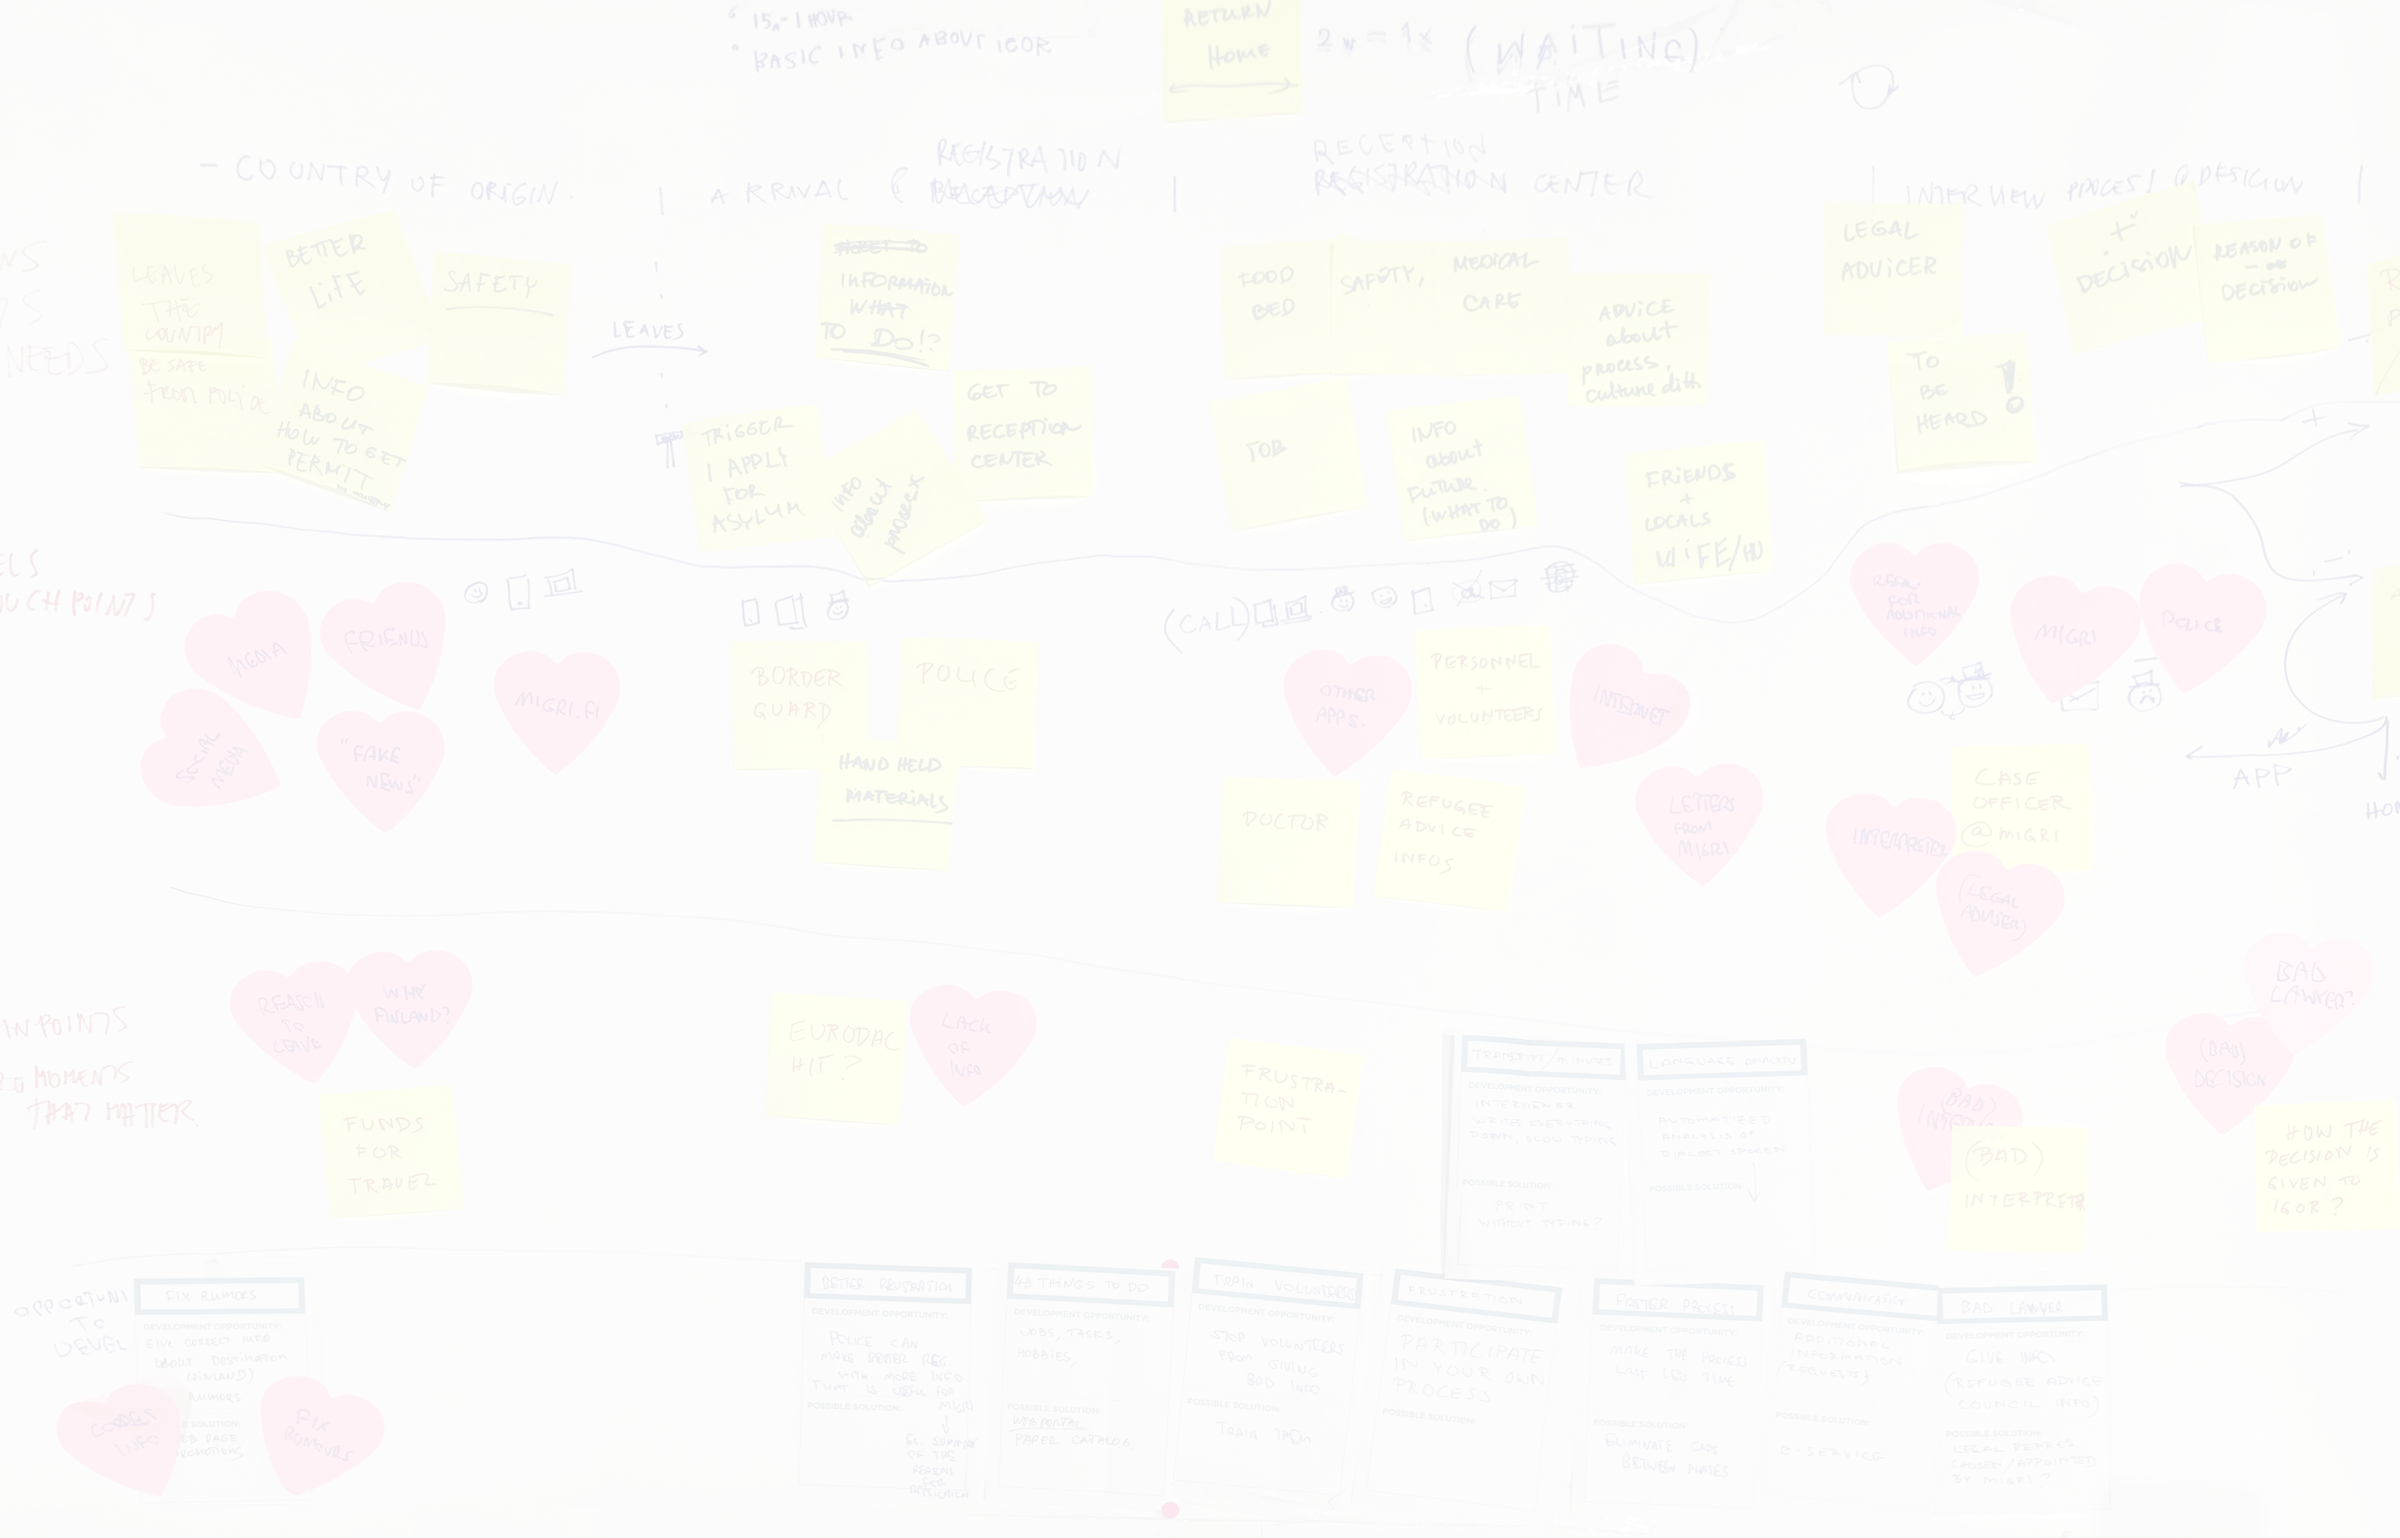 15m - 1 HOUR
BASIC INFO ABOUT IGOR
RETURN
HOME
(WAITING)
TIME
- COUNTRY OF ORIGIN
ARRIVAL
REGISTRATION
RECEPTION
CENTER
INTERVIEW PROCESS
NEEDS
LEAVES
THE
COUNTRY
BETTER
LIFE
SAFETY
BE SAFE
FROM POLICE
INFO
ABOUT
HOW TO GET
PERMIT
LEAVES
INFORMATION
WHAT
TO DO!?
TRIGGER
I APPLY
FOR
ASYLUM
INFO
about
process
GET TO
RECEPTION
CENTER
FOOD
BED
SAFETY,
MEDICAL
CARE
ADVICE
about
process,
culture diff
JOB
INFO
about
FUTURE.
(WHAT TO
DO)
FRIENDS
+
LOCALS
WIFE/HU
LEGAL
ADVICER
TO
BE
HEARD !
DECISION
REASON OF
DECISION
+
-
TOUCH POINTS
MEDIA
FRIENDS
SOCIAL
MEDIA
"FAKE
NEWS"
MIGRI.FI
BORDER
GUARD
POLICE
HAND HELD
MATERIALS
(CALL)
OTHER
APPS.
PERSONNEL
+
VOLUNTEERS
INTERNET
DOCTOR
REFUGEE
ADVICE
INFOS
LETTERS
FROM
MIGRI
FOR
ADDITIONAL
INFO
MIGRI
POLICE
INTERPRETER
CASE
OFFICER
@MIGRI
(LEGAL
ADVISER)
APP
MOMENTS
THAT MATTER
REASON
TO
LEAVE
WHY
FINLAND?
FUNDS
FOR
TRAVEL
EURODAC
HIT?
LACK
OF
INFO
FRUSTRA-
TION
POINT
DEVELOPMENT OPPORTUNITY:
INTERVIEWER
WRITES EVERYTHING
DOWN, SLOW TYPING
POSSIBLE SOLUTION:
PRINT
WITHOUT TYPING?
LANGUAGE ANALYSIS
DEVELOPMENT OPPORTUNITY:
AUTOMATIZED
ANALYSIS OF
DIALECT SPOKEN
POSSIBLE SOLUTION:
(BAD)
(BAD)
INTERPRETER
BAD
LAWYER?
(BAD)
DECISION
HOW THE
DECISION IS
GIVEN TO
IGOR?
TO
DEVEL
FIX RUMORS
DEVELOPMENT OPPORTUNITY:
GIVE CORRECT INFO
ABOUT DESTINATION
(FINLAND)
RUMORS
INFO
FIX
RUMOURS
BETTER REGISTRATION
DEVELOPMENT OPPORTUNITY:
POLICE CAN
MAKE BETTER REG.
WITH MORE INFO
THAT IS USEFUL FOR
MIGRI
POSSIBLE SOLUTION:
THINGS TO DO
DEVELOPMENT OPPORTUNITY:
JOBS, TASKS,
HOBBIES,
POSSIBLE SOLUTION:
PAPER CATALOG
TRAIN VOLUNTEERS
DEVELOPMENT OPPORTUNITY:
STOP VOLUNTEERS
FROM GIVING
BAD INFO
POSSIBLE SOLUTION:
TRAIN THEM
FRUSTRATION
DEVELOPMENT OPPORTUNITY:
PARTICIPATE
IN YOUR OWN
PROCESS
POSSIBLE SOLUTION:
FASTER PROCESS
DEVELOPMENT OPPORTUNITY:
MAKE THE PROCESS
LAST LESS TIME
POSSIBLE SOLUTION:
ELIMINATE GAPS
BETWEEN PHASES
COMMUNICATION
DEVELOPMENT OPPORTUNITY:
ADDITIONAL
INFORMATION
(REQUESTS)
POSSIBLE SOLUTION:
E-SERVICE
BAD LAWYER
DEVELOPMENT OPPORTUNITY:
GIVE INFO
(REFUGEE ADVICE
COUNCIL INFO)
POSSIBLE SOLUTION: